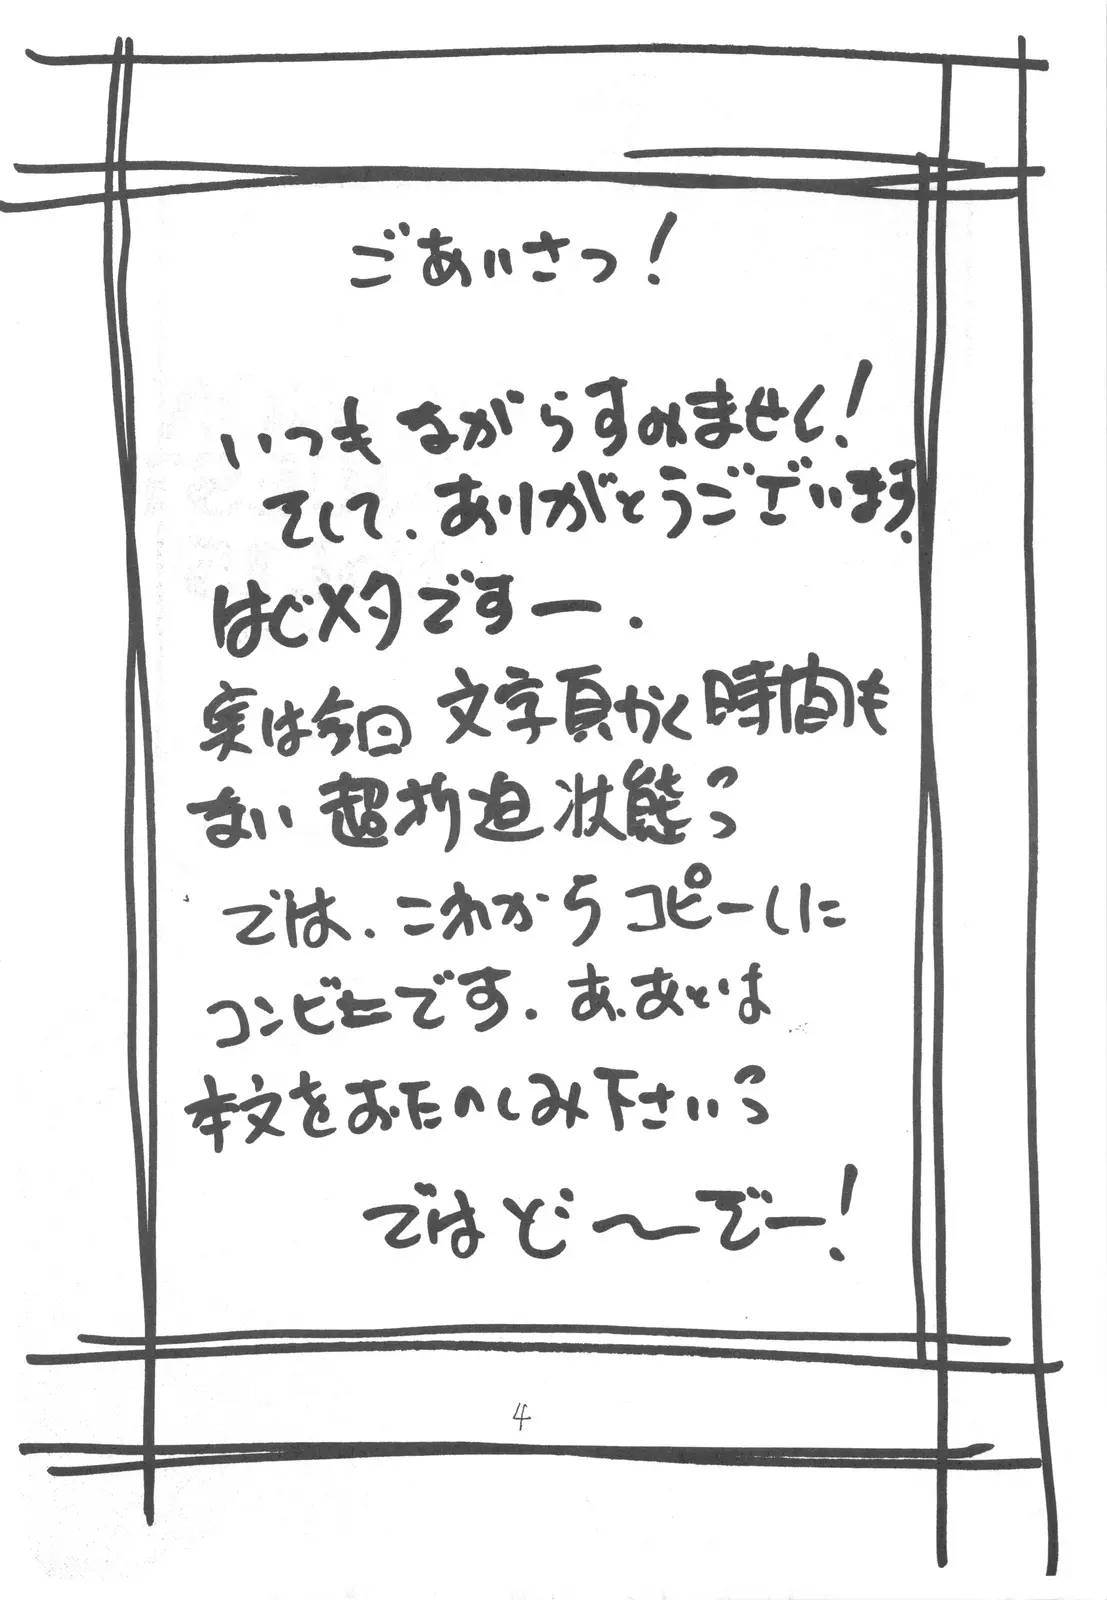 ごあいさつ!
いつもながらすみません!
そして、ありがとうございます。
はじメタですー.
実は今回 文字頁かく時間も
ない 超折迫状態っ
では、これから コピーしに
コンビニです. あ、あとは
本文をおたのしみ下さいっ
では ど〜ぞー!
4